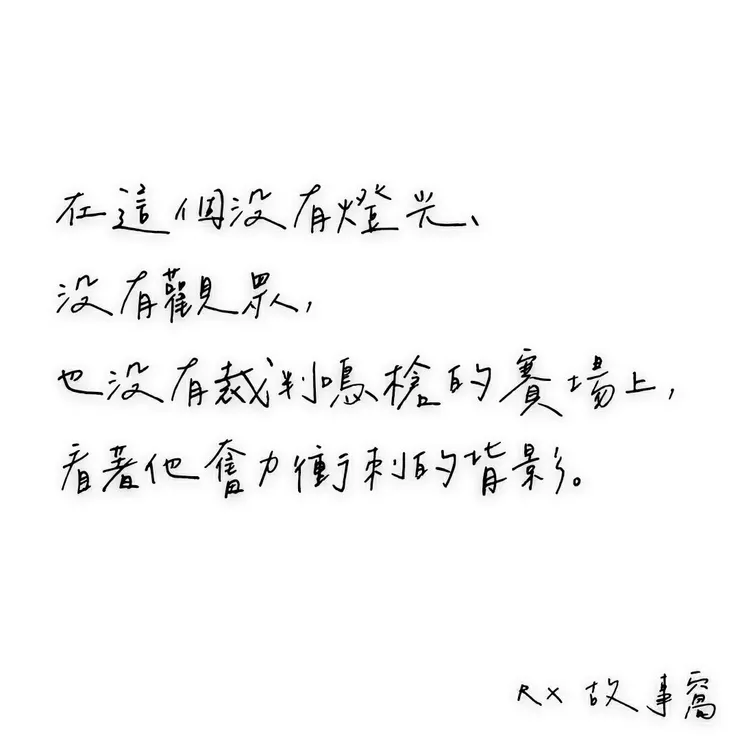 在這個没有燈光、
没有觀眾，
也没有裁判鳴槍的賽場上，
看著他奮力衝刺的背影。
RX 故事窩